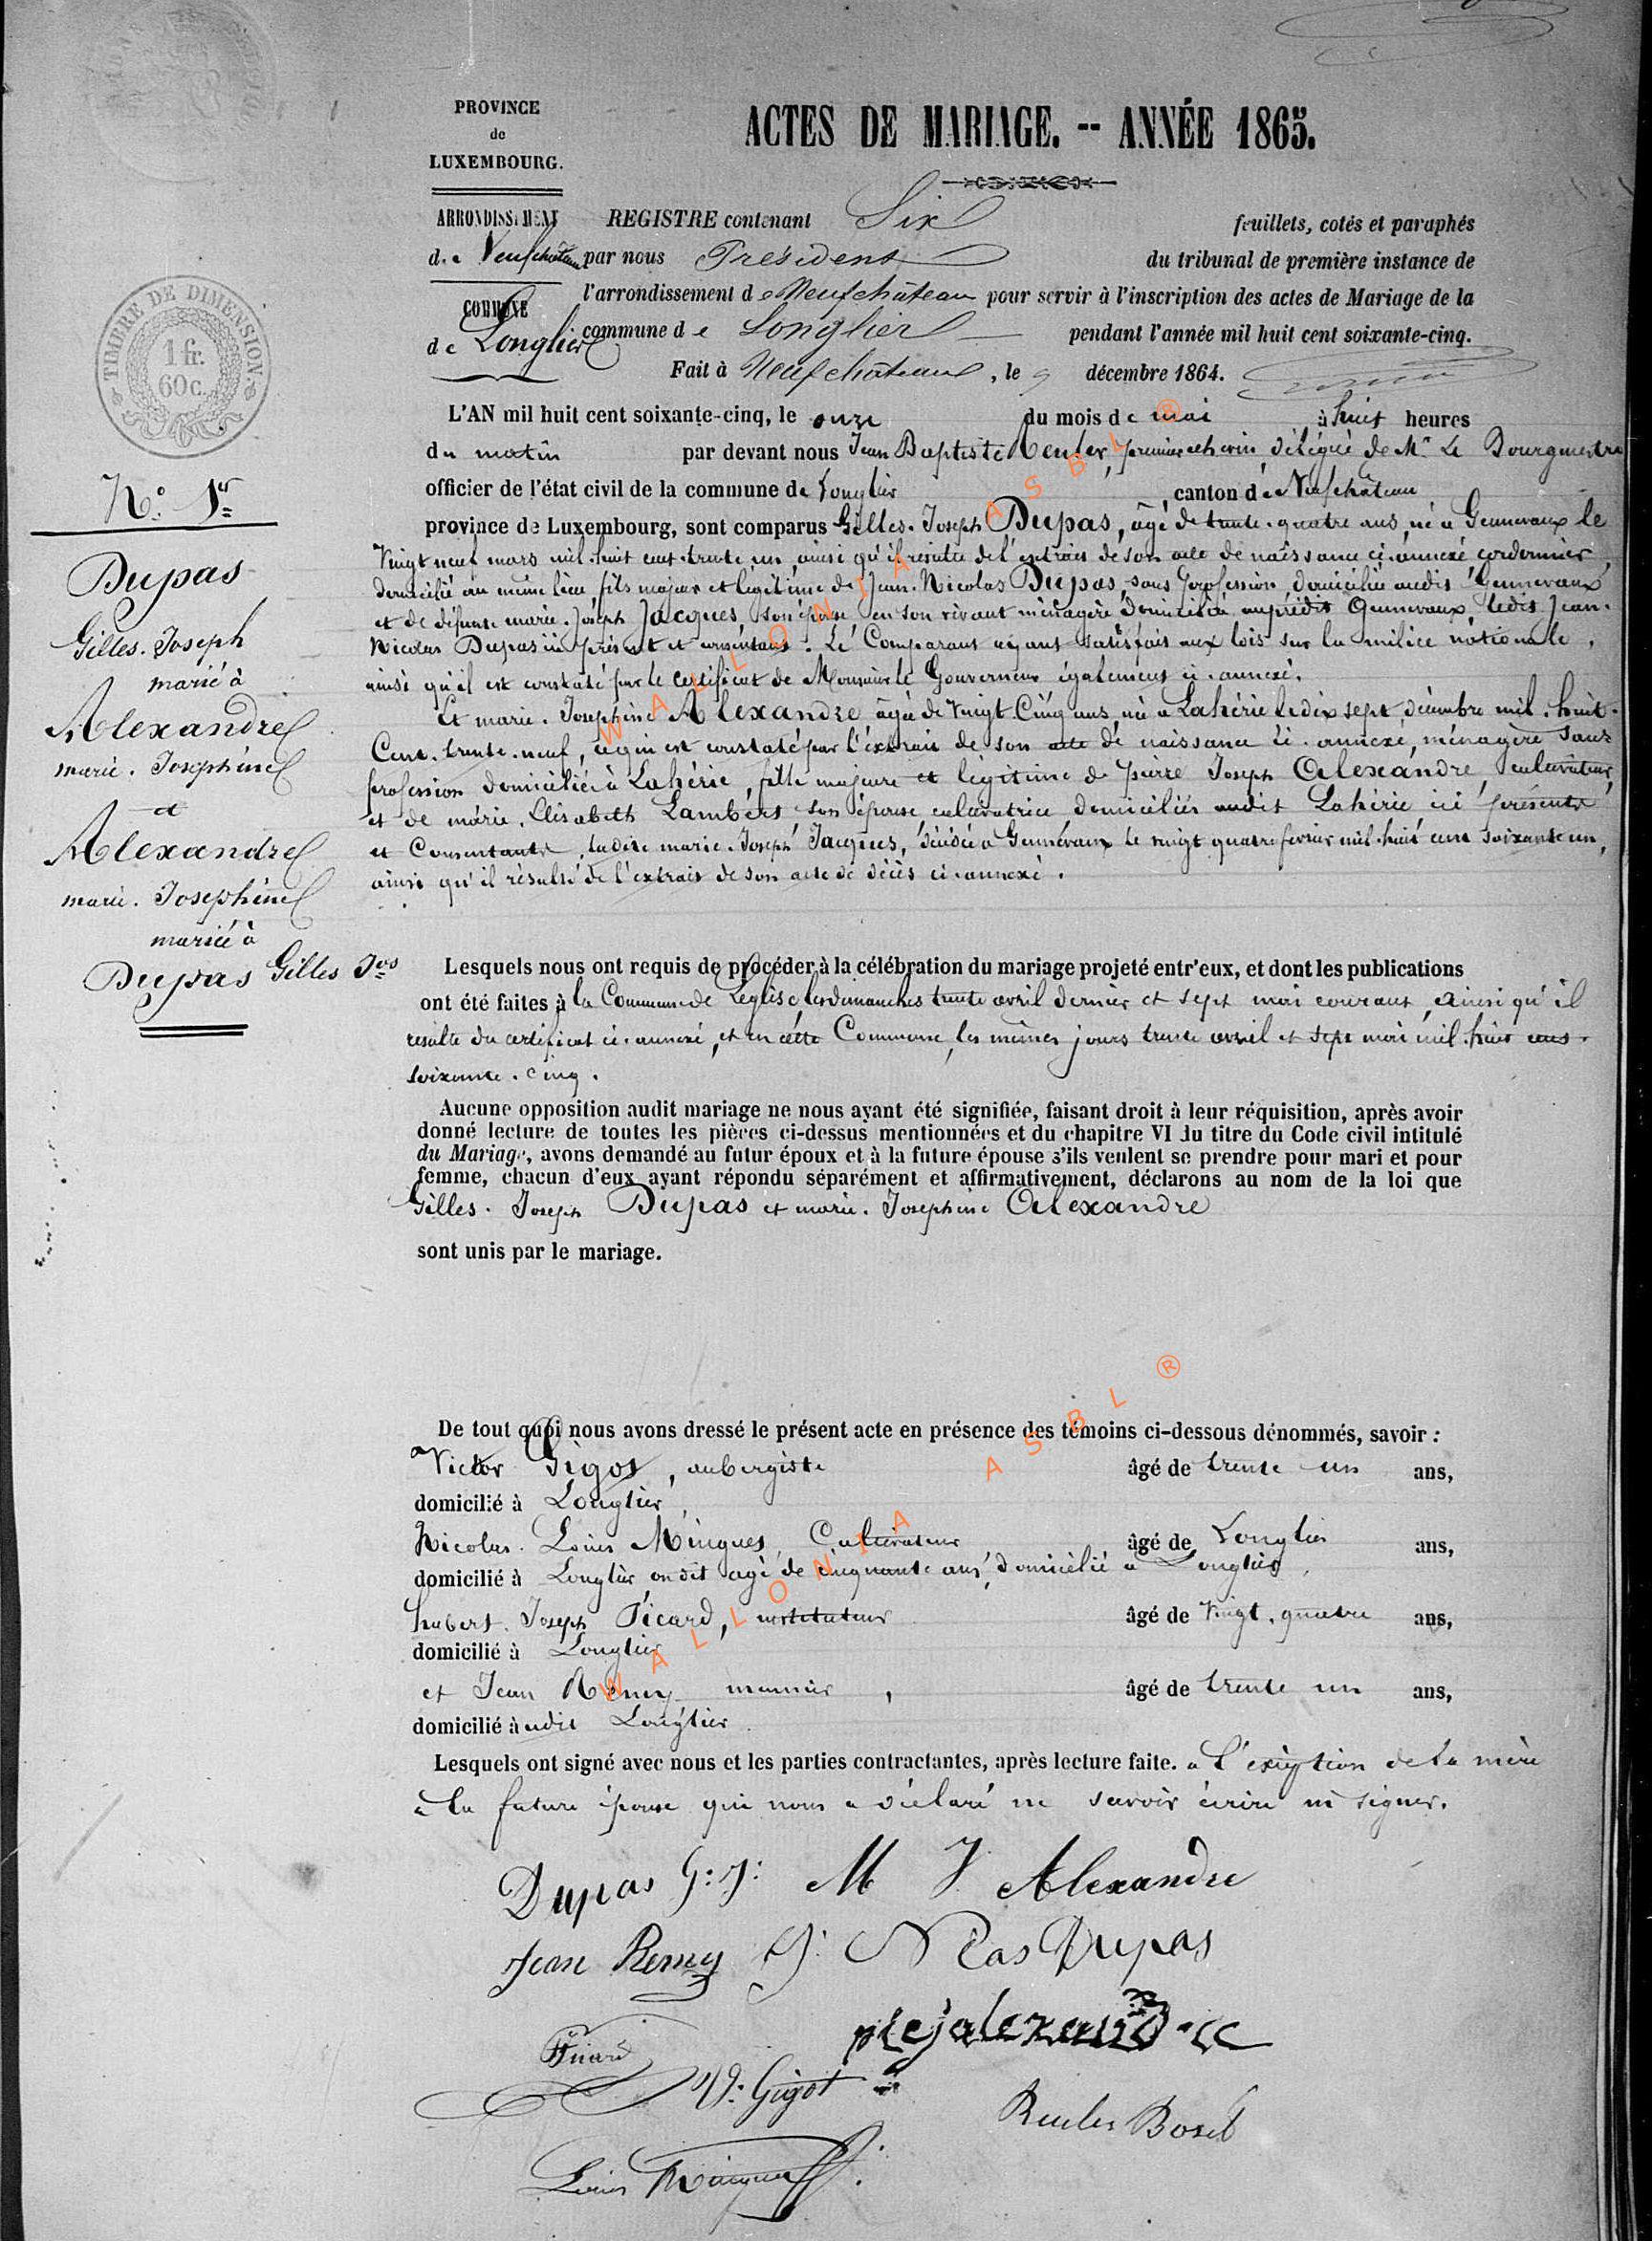 PROVINCE
de
LUXEMBOURG.
ACTES DE MARIAGE. -- ANNÉE 1865.
ARRONDISSEMENT
de Neufchâteau
COMMUNE
de Longlier
REGISTRE contenant Six feuillets, cotés et paraphés
par nous Président du tribunal de première instance de
l'arrondissement de Neufchâteau pour servir à l'inscription des actes de Mariage de la
commune de Longlier pendant l'année mil huit cent soixante-cinq.
Fait à Neufchâteau, le 9 décembre 1864.
TIMBRE DE DIMENSION.
1 fr.
60 c.
N° 1er
Dupas
Gilles. Joseph
marié à
Alexandre
marie. Joséphine
et
Alexandre
marie. Joséphine
mariée à
Dupas Gilles Jos
L'AN mil huit cent soixante-cinq, le onze du mois de mai à huit heures
du matin par devant nous Jean Baptiste Reuler, premier échevin délégué de Mr Le Bourgmestre
officier de l'état civil de la commune de Longlier, canton de Neufchâteau
province de Luxembourg, sont comparus Gilles. Joseph Dupas, âgé de trente. quatre ans, né a Gennevaux le
Vingt neuf mars mil. huit cent. trente un, ainsi qu'il résulte de l'extrait de son acte de naissance ci. annexé cordonnier,
domicilié au même lieu fils majeur et légitime de Jean. Nicolas Dupas sans profession domicilié audit Gennevaux
et de défunte marie. Joseph Jacques, son épouse en son vivant ménagère domiciliée auprédit Gennevaux ledit Jean.
Nicolas Dupas ici présent et consentant. Le Comparant ayant satisfait aux lois sur la milice nationale,
ainsi qu'il est constaté par le certificat de Monsieur le Gouverneur également ci. annexé.
Et marie. Joséphine Alexandre âgée de Vingt Cinq ans, née a Lahérie le dix sept décembre mil. huit.
Cent. trente. neuf, ce qui est constaté par l'extrait de son acte de naissance ci. annexé, ménagère sans
profession domiciliée à Lahérie, fille majeure et légitime de pierre Joseph Alexandre, cultivateur,
et de marie. Elisabeth Lambert son épouse, cultivatrice domiciliés audit Lahérie ici présents
et Consentants, ladite marie. Joseph Jacques, décédée a Gennevaux le vingt quatre fevrier mil. huit cent soixante un,
ainsi qu'il résulte de l'extrait de son acte de décès ci. annexé.
Lesquels nous ont requis de procéder à la célébration du mariage projeté entr'eux, et dont les publications
ont été faites à la Commune de Léglise, les dimanches trente avril dernier et sept mai courant, ainsi qu'il
resulte du certificat ci. annexé, et en cette Commune, les mêmes jours trente avril et sept mai mil. huit cent.
soixante. cinq.
Aucune opposition audit mariage ne nous ayant été signifiée, faisant droit à leur réquisition, après avoir
donné lecture de toutes les pièces ci-dessus mentionnées et du chapitre VI du titre du Code civil intitulé
du Mariage, avons demandé au futur époux et à la future épouse s'ils veulent se prendre pour mari et pour
femme, chacun d'eux ayant répondu séparément et affirmativement, déclarons au nom de la loi que
Gilles. Joseph Dupas et marie. Joséphine Alexandre
sont unis par le mariage.
De tout quoi nous avons dressé le présent acte en présence des témoins ci-dessous dénommés, savoir :
Victor Gigot, aubergiste âgé de trente un ans,
domicilié à Longlier,
Nicolas. Louis Mingues, Cultivateur âgé de Longlier ans,
domicilié à Longlier, on dit agé de cinquante ans, domicilié a Longlier,
hubert. Joseph Picard, instituteur âgé de Vingt. quatre ans,
domicilié à Longlier
et Jean Remy meunier, âgé de trente un ans,
domicilié à udit Longlier
Lesquels ont signé avec nous et les parties contractantes, après lecture faite. a l'exception de la mère
de la future épouse qui nous a déclaré ne savoir écrire ni signer.
Dupas G: J: M J Alexandre
Jean Remy J: Nlas Dupas
Picard
pre j alexandre
V: Gigot
Reuler Bosel
Louis Mingues
WALLONIA ASBL ®
WALLONIA ASBL ®